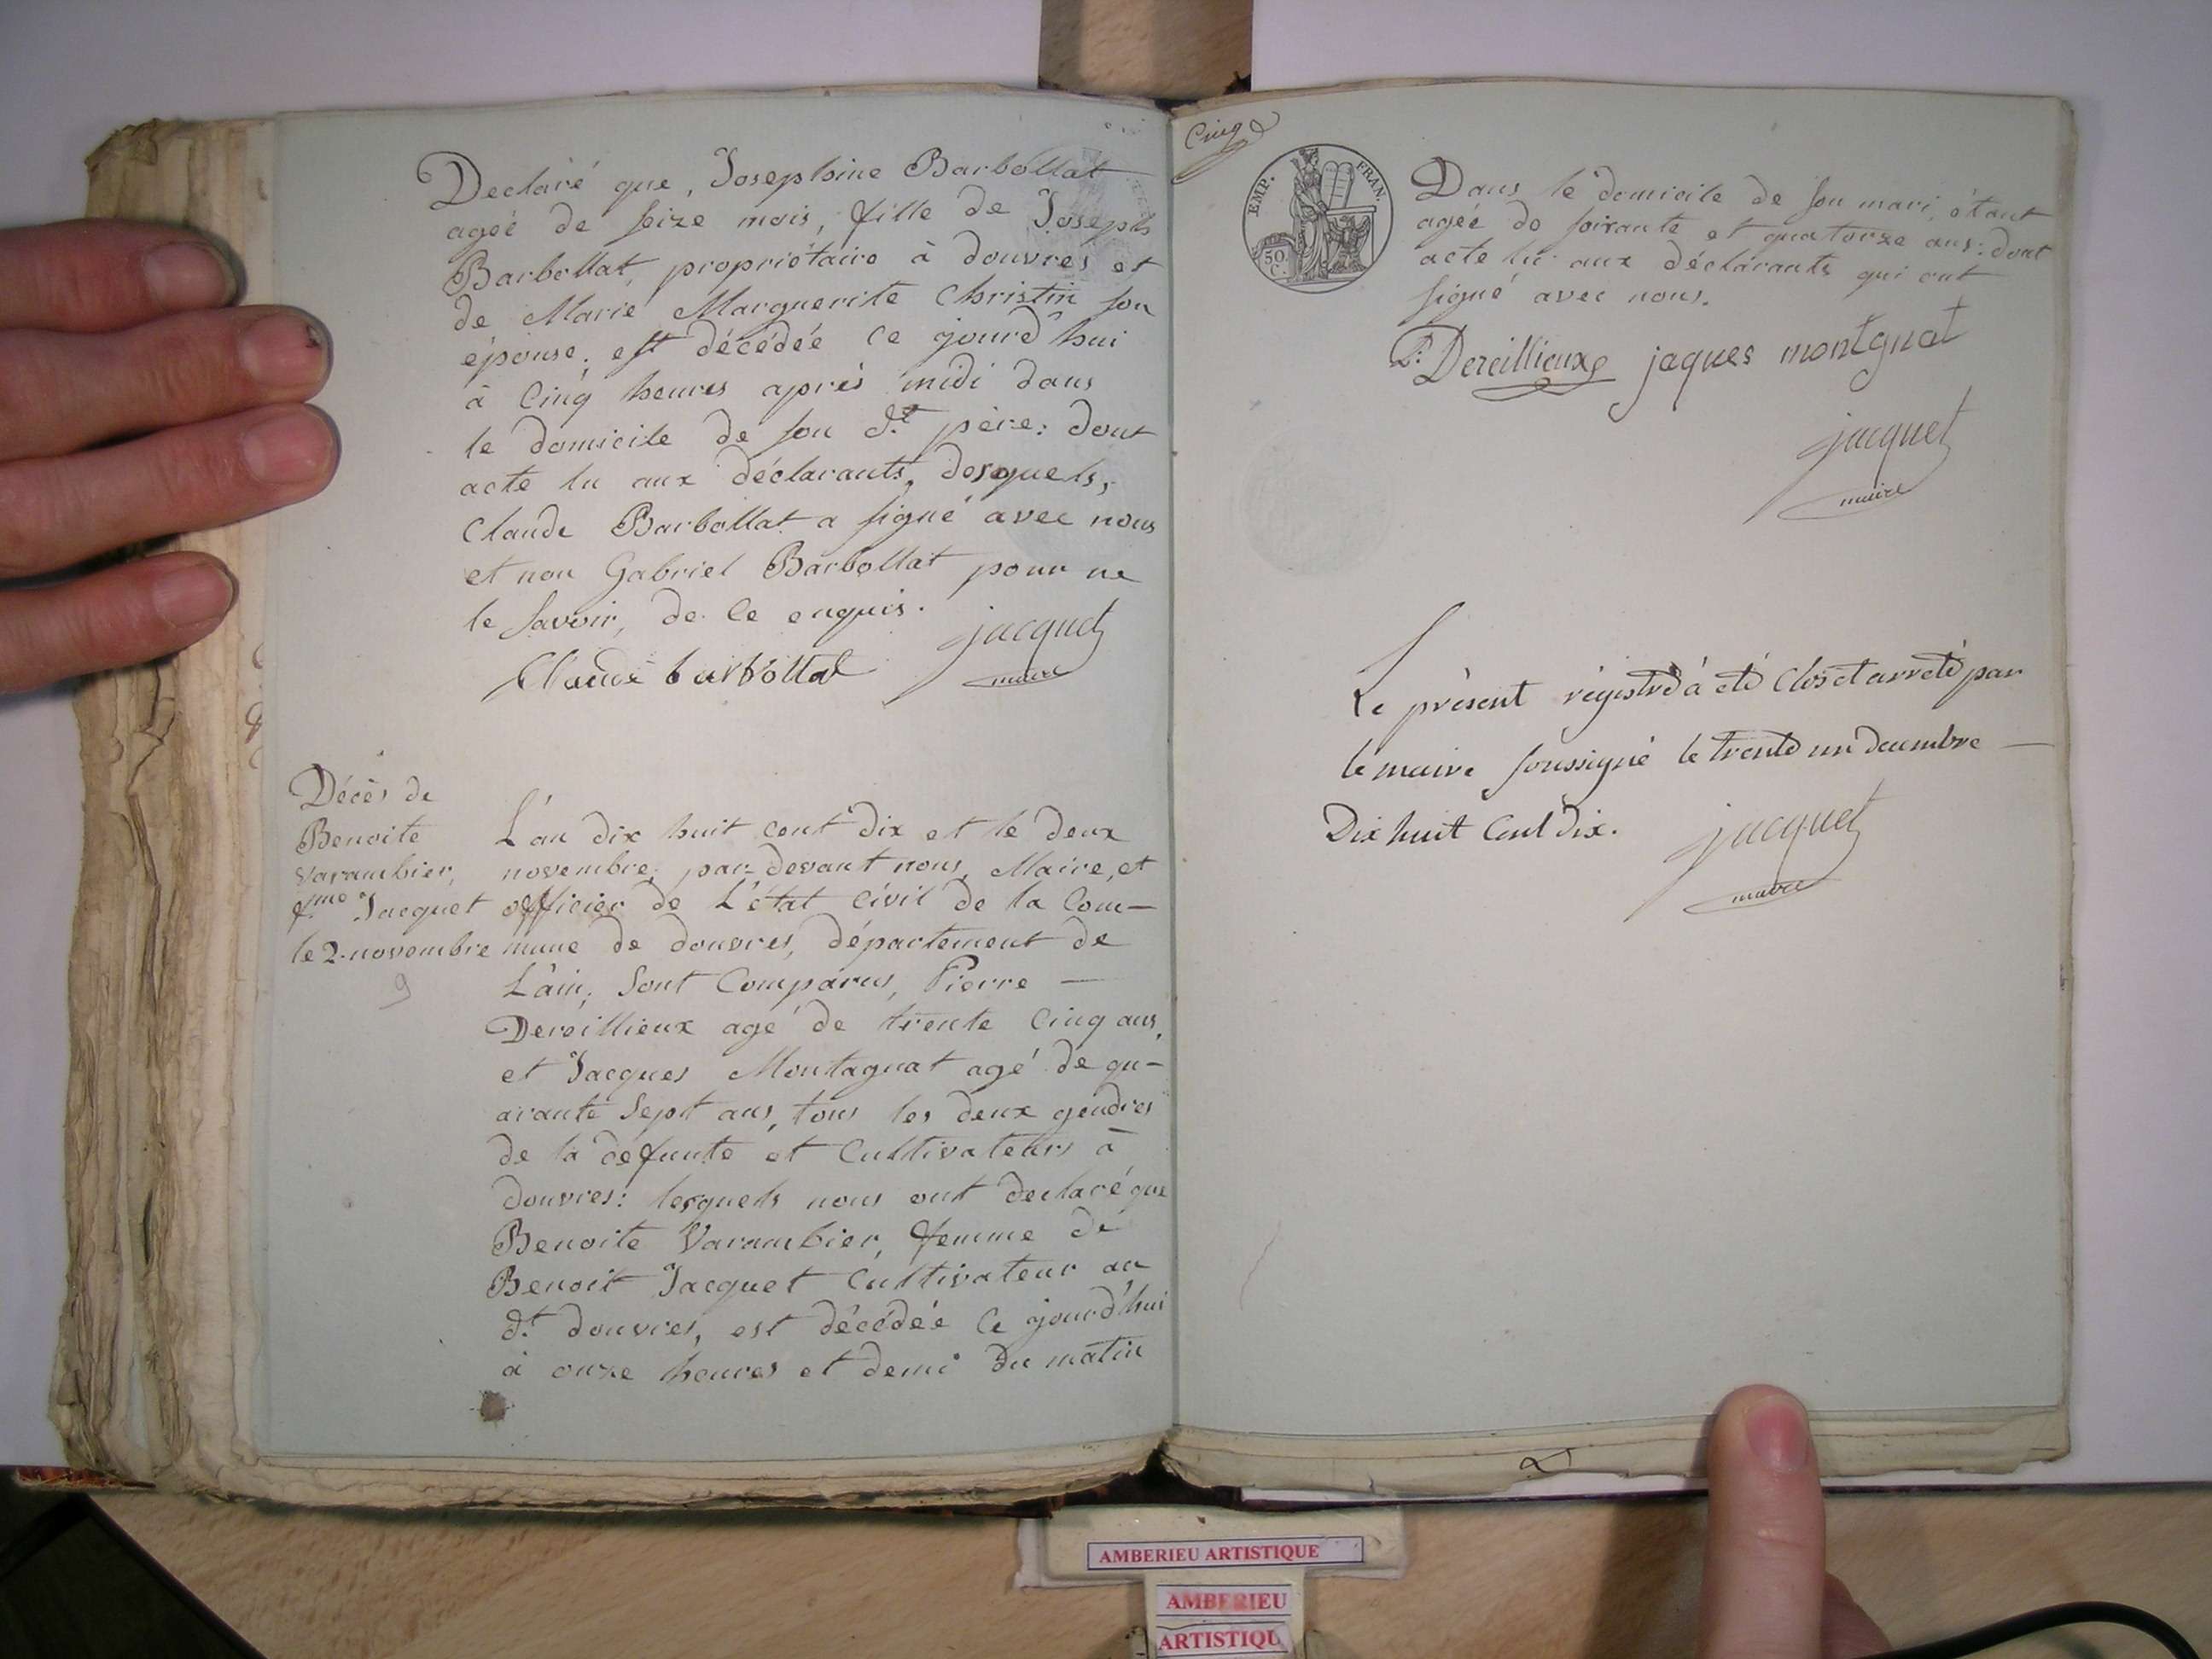 Declaré que, Josephine Barbollat
agée de seize mois, fille de Joseph
Barbollat, propriétaire à douvres et
de Marie Marguerite Christin son
épouse, est décédée ce jourd'hui
à Cinq heures après midi dans
le domicile de son dt. père: dont
acte lu aux déclarants, desquels,
Claude Barbollat a signé avec nous
et non Gabriel Barbollat pour ne
le savoir, de ce enquis.
jacquet
maire
Claude barbollat
Décès de
Benoite
varambier,
fme. Jacquet
le 2 novembre
9
L'an dix huit cent dix et le deux
novembre, par-devant nous, Maire, et
officier de L'état Civil de la Com-
mune de douvres, département de
L'ain, sont Comparus, Pierre —
Dereillieux agé de trente Cinq ans,
et Jacques Montagnat agé de qu-
arante sept ans, tous les deux gendres
de la défunte et Cultivateurs à
douvres: lesquels nous ont declaré que
Benoite Varambier, femme de
Benoit Jacquet Cultivateur au
dt. douvres, est décédée ce jourd'hui
à onze heures et demi du matin
Cinq
EMP. FRAN.
50 C.
Dans le domicile de son mari, étant
agée de soixante et quatorze ans: dont
acte lu aux déclarants qui ont
signé avec nous.
P. Dereillieux jaques montgnat
jacquet
maire
Le présent régistre a été Clos et arreté par
le maire soussigné le trente un decembre —
Dix huit Cent Dix.
jacquet
maire
AMBERIEU ARTISTIQUE
AMBERIEU
ARTISTIQU